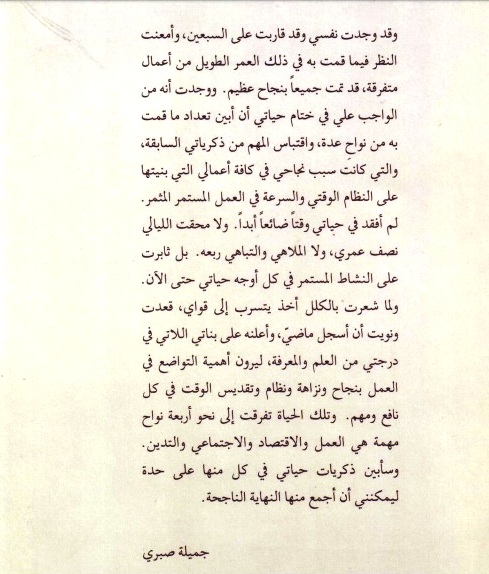 وقد وجدت نفسي وقد قاربت على السبعين، وأمعنت
النظر فيما قمت به في ذلك العمر الطويل من أعمال
متفرقة، قد تمت جميعاً بنجاح عظيم. ووجدت أنه من
الواجب علي في ختام حياتي أن أبين تعداد ما قمت
به من نواحٍ عدة، واقتباس المهم من ذكرياتي السابقة،
والتي كانت سبب نجاحي في كافة أعمالي التي بنيتها
على النظام الوقتي والسرعة في العمل المستمر المثمر.
لم أفقد في حياتي وقتاً ضائعاً أبداً. ولا محقت الليالي
نصف عمري، ولا الملاهي والتباهي ربعه. بل ثابرت
على النشاط المستمر في كل أوجه حياتي حتى الآن.
ولما شعرت بالكلل أخذ يتسرب إلى قواي، قعدت
ونويت أن أسجل ماضيّ، وأعلنه على بناتي اللاتي في
درجتي من العلم والمعرفة، ليرون أهمية التواضع في
العمل بنجاح ونزاهة ونظام وتقديس الوقت في كل
نافع ومهم. وتلك الحياة تفرقت إلى نحو أربعة نواح
مهمة هي العمل والاقتصاد والاجتماعي والتدين.
وسأبين ذكريات حياتي في كل منها على حدة
ليمكنني أن أجمع منها النهاية الناجحة.
جميلة صبري